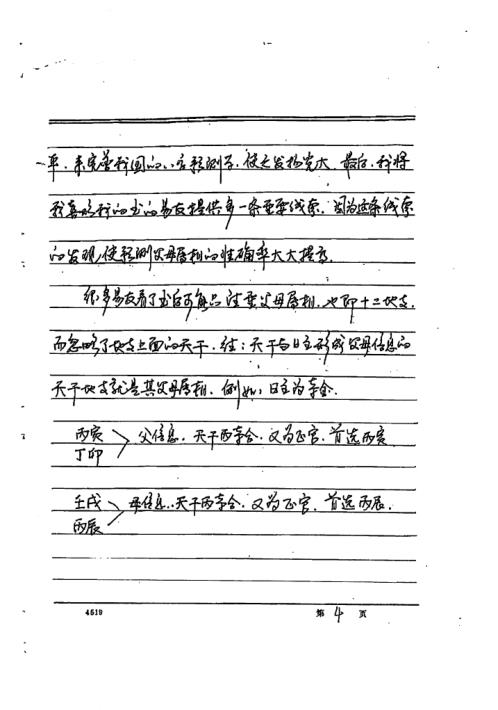 一车,来完善我国的八字预测学,使之发扬光大.最后,我将
我喜好我的书的易友提供多一条重要线索.因为这条线索
的发现,使预测父母属相的准确率大大提高.
很多易友看了书后可能只注重父母属相.也即十二地支.
而忽略了地支上面的天干.注:天干与日主形成父母信息的
天干地支就是其父母属相.例如:日主为辛金.
丙寅
丁卯 > 父信息.天干丙辛合.又为正官.首选丙寅
壬戌
丙辰 > 母信息.天干丙辛合.又为正官.首选丙辰.
4519
第 4 页